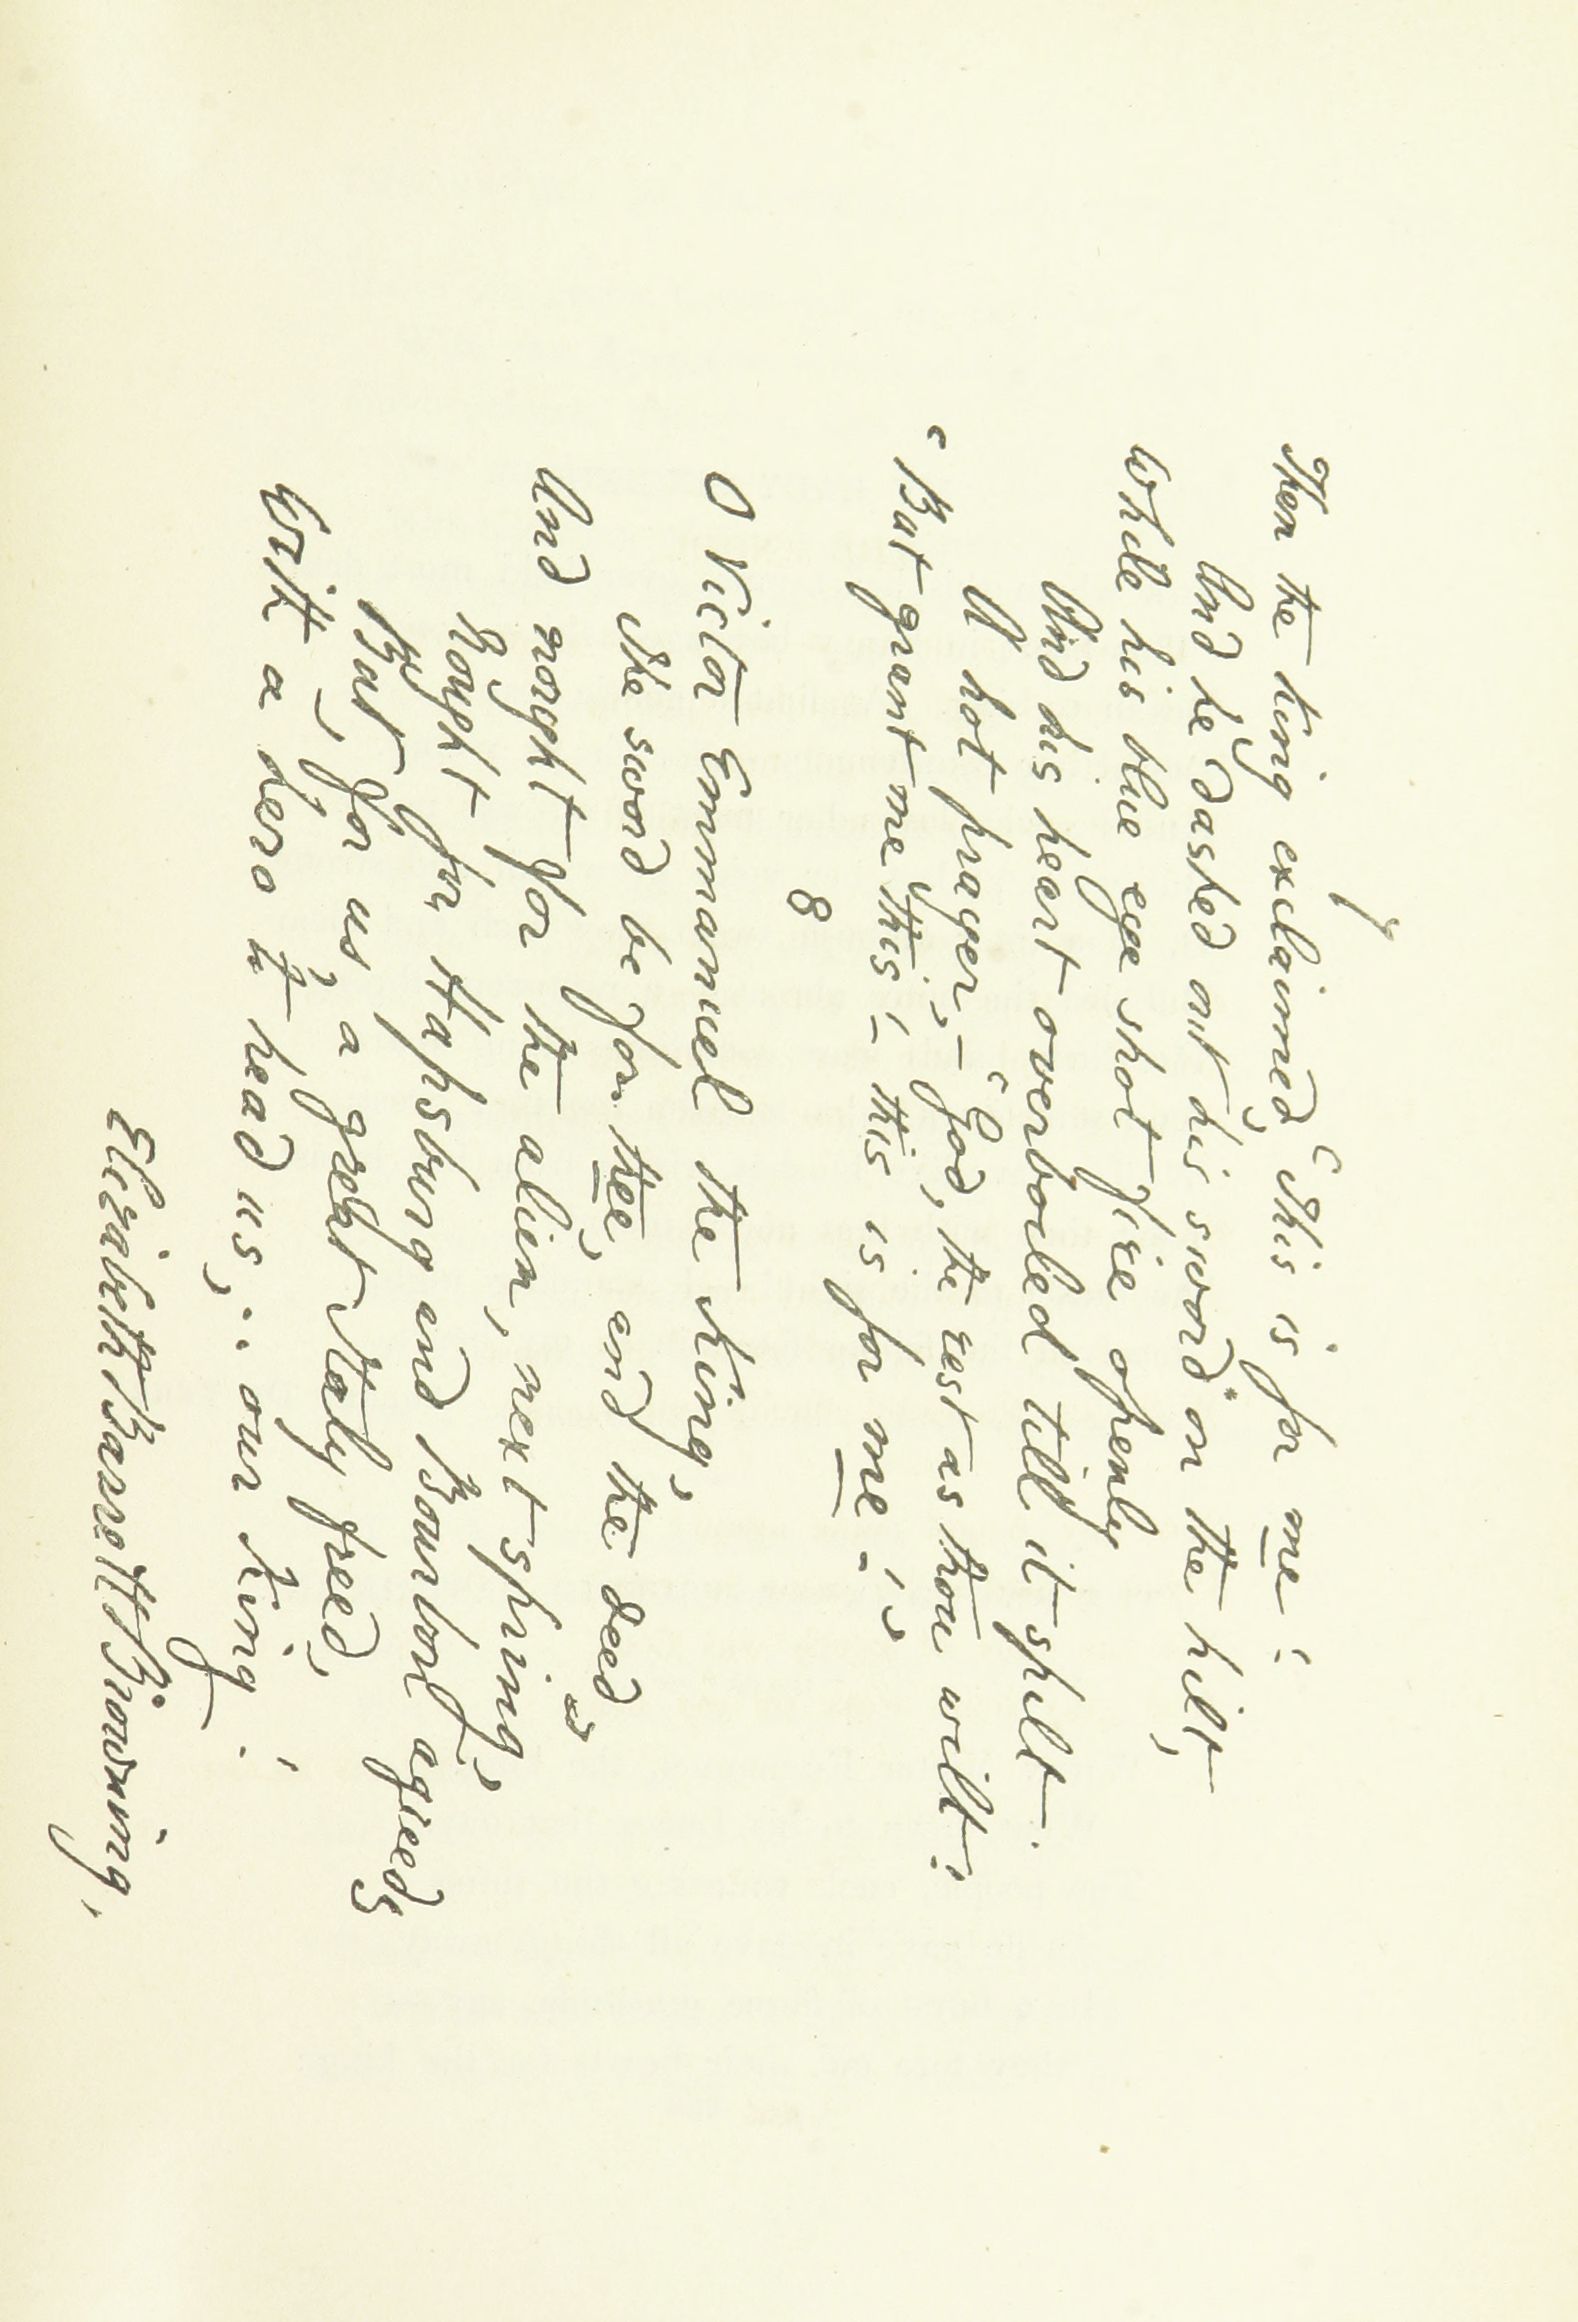 7
Then the king exclaimed, "This is for me!"
And he dashed out his sword on the hilt,
While his blue eye shot fire openly
And his heart overboiled till it spilt
A hot prayer, – "God, the rest as thou wilt!
"But grant me this! – this is for me!"
8
O Victor Emmanuel the King,
The sword be for thee, and the deed
And nought for the alien, next spring,
Nought for Hapsburg and Bourbon agreed
But, for us, a great Italy freed,
With a hero to head us, .. our King!
Elizabeth Barrett Browning.